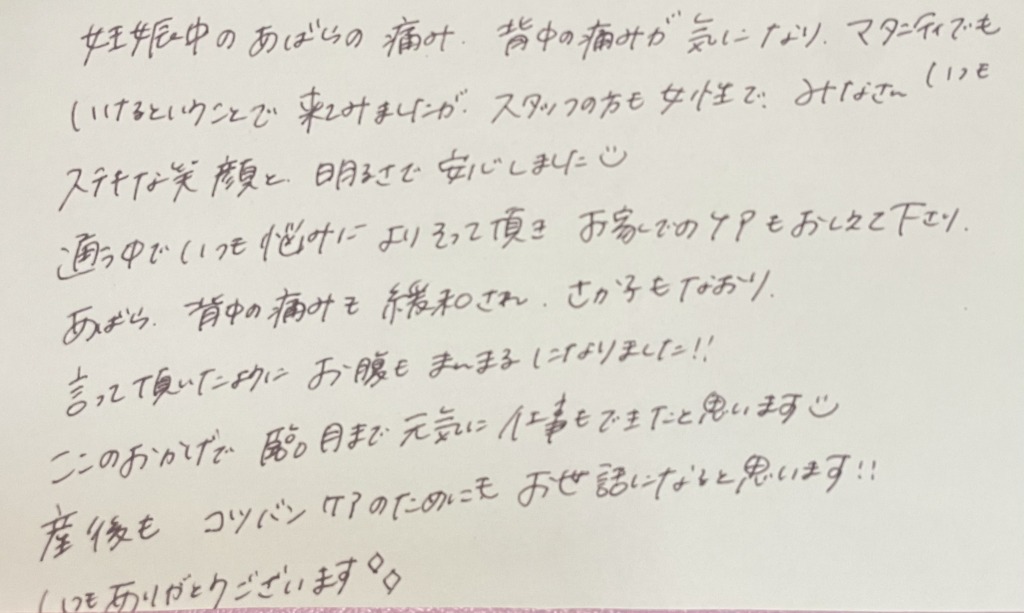 妊娠中のあばらの痛み、背中の痛みが気になり、マタニティでも
いけるということで来てみましたが、スタッフの方も女性で、みなさんいつも
ステキな笑顔と、明るさで安心しました☺
通う中でいつも悩みによりそって頂き お家でのケアもおしえて下さり、
あばら、背中の痛みも緩和され、さか子もなおり、
言って頂いたようにお腹もまんまるになりました!!
ここのおかげで臨月まで元気に仕事もできたと思います☺
産後もコツバンケアのためにもお世話になると思います!!
いつもありがとうございます◇◇